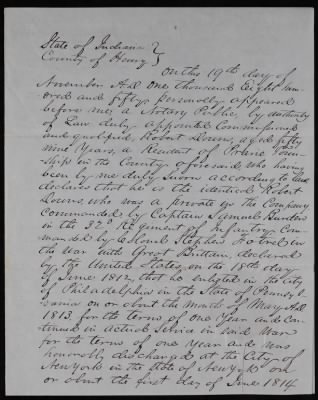 State of Indiana }
County of Henry }
On this 19th day of
November A.D. One thousand Eight hun-
dred and fifty personally appeared
before me, a Notary Public, by authority
of Law duly appointed Commissioned
and qualified, Robert Downs, aged fifty
nine Years, a Resident of Prairie Town-
ship in the County aforesaid who having
been by me duly Sworn according to Law
declares that he is the identical Robert
Downs, who was a private in the Company
Commanded by Captain Samuel
in the 32d Regiment of Infantry Com-
manded by Colonel Stephen
the War with Great Brittain, declared
by the United States, on the 18th day
of June 1812, that he Enlisted in the City
of Philadelphia in the State of Pennsyl-
vania on or about the Month of May A.D.
1813 for the term of One Year and Con-
tinued in Actual Service in Said War
for the term of one Year and was
honorably discharged at the City of
New York in the State of New York on
or about the first day of June 1814